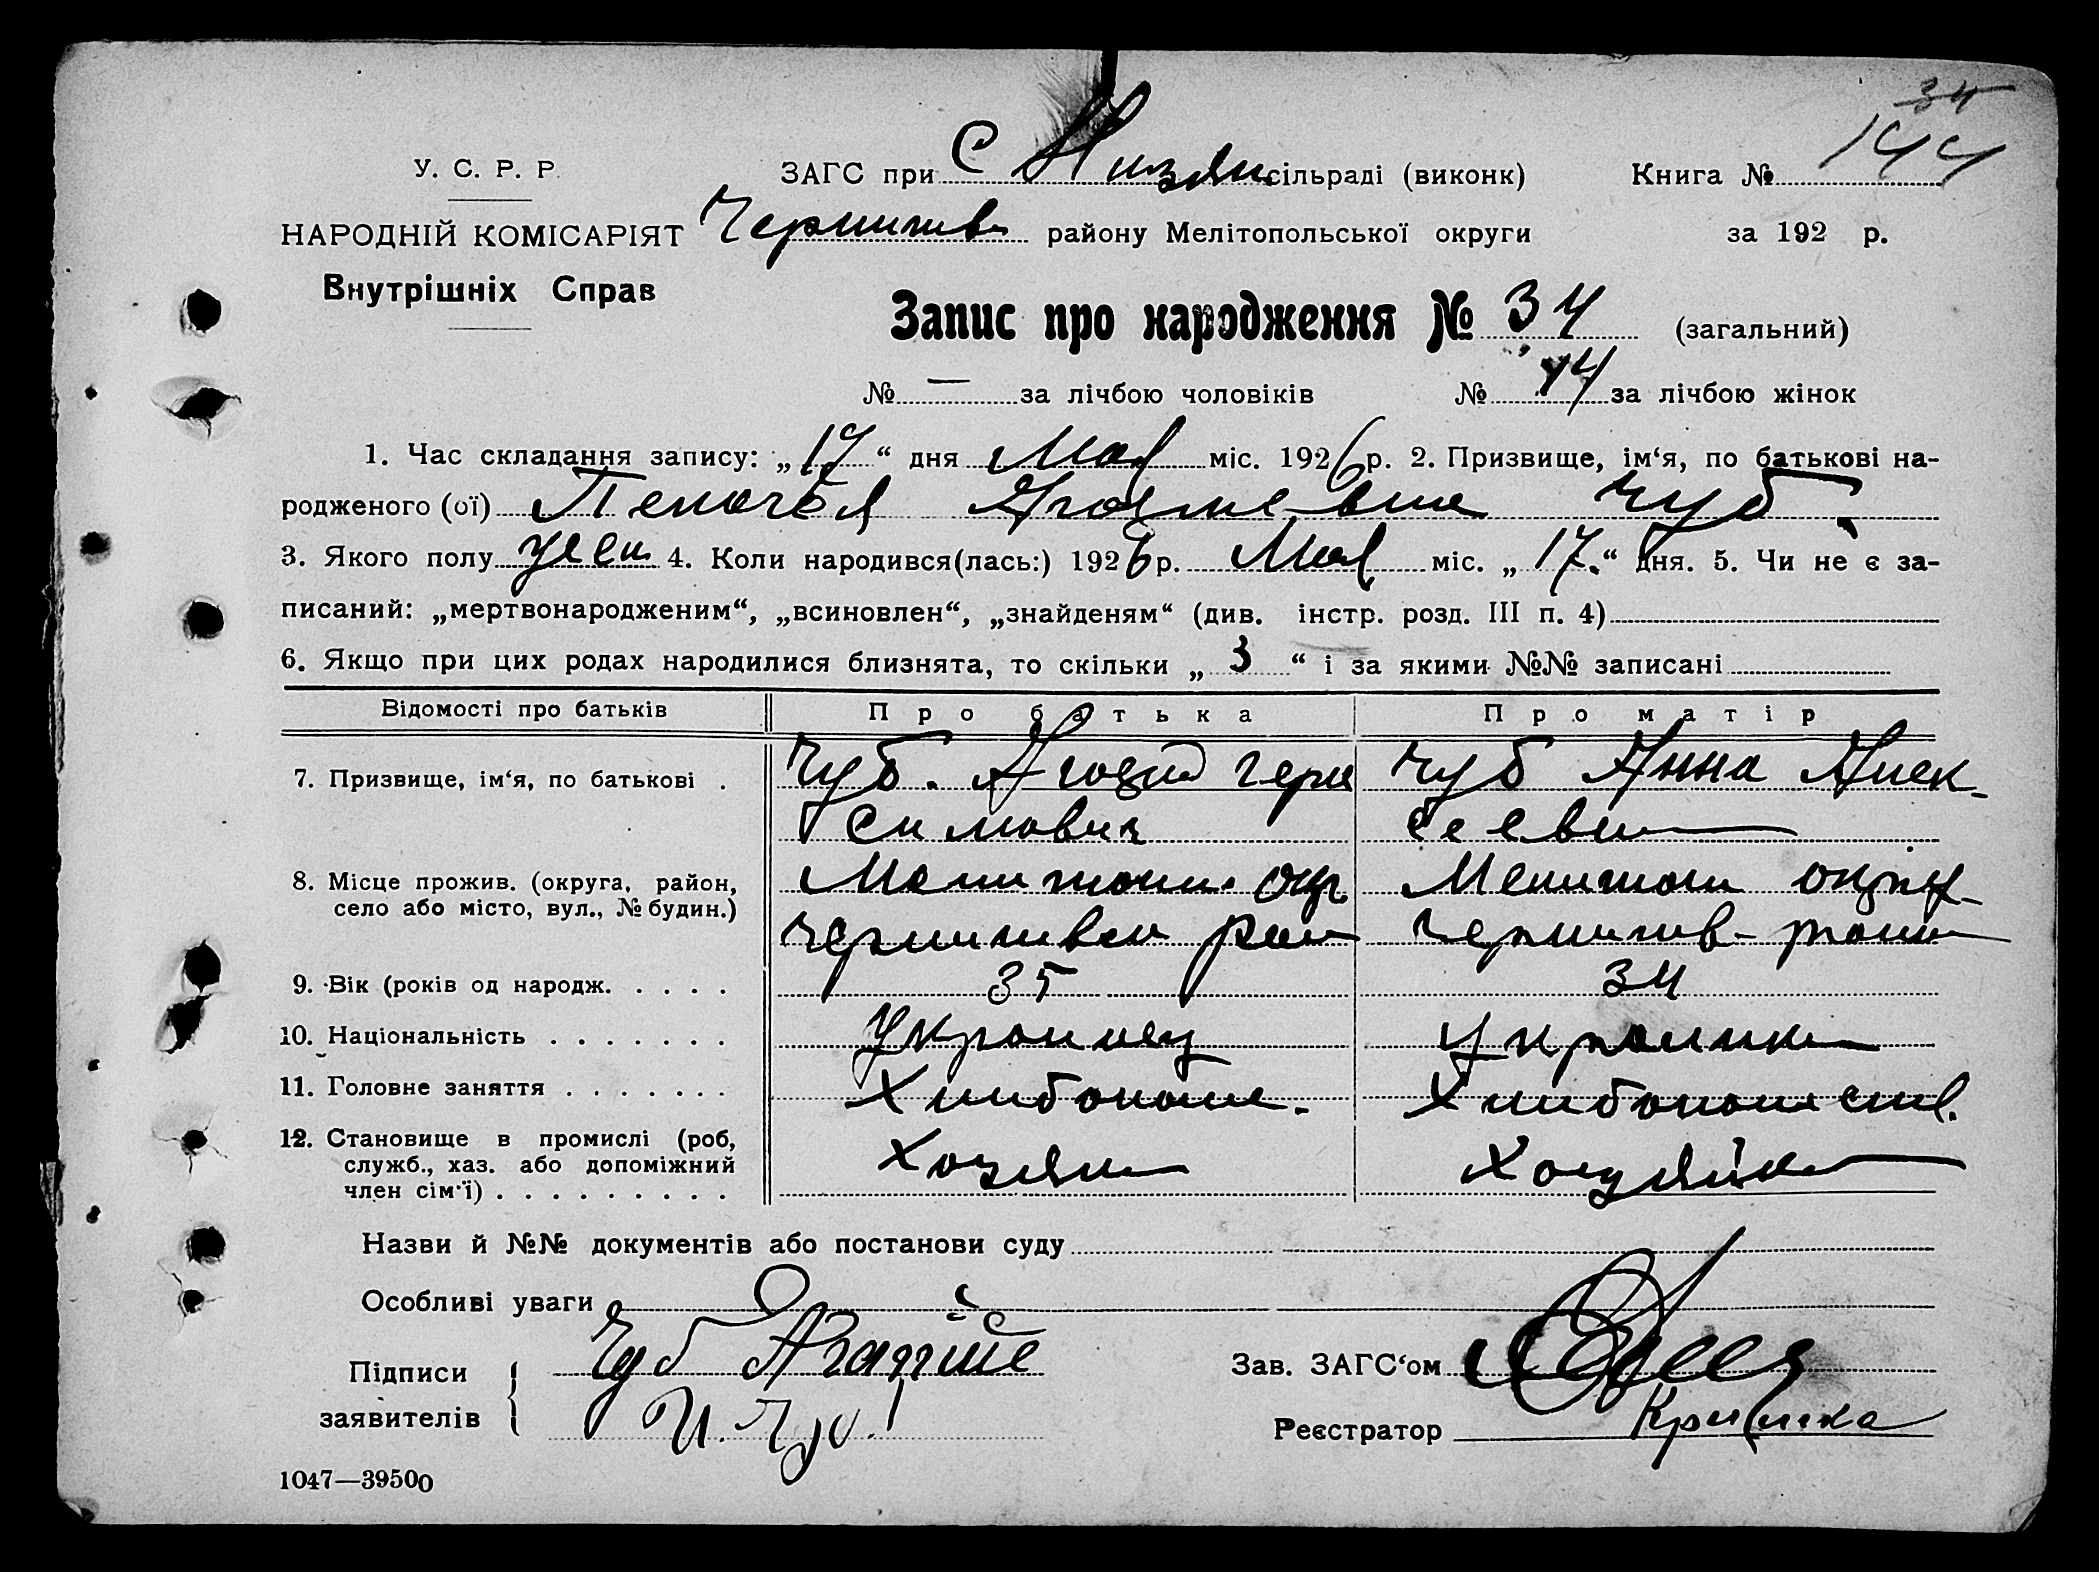 34
144
У. С. Р. Р.
ЗАГС при С Низян сільраді (виконк)
Книга №
НАРОДНІЙ КОМІСАРІЯТ
Чернигивс району Мелітопольської округи
за 192 р.
Внутрішніх Справ
Запис про народження № 34 (загальний)
№ — за лічбою чоловіків № 14 за лічбою жінок
1. Час складання запису: „17“ дня Мая міс. 1926 р. 2. Призвище, ім‘я, по батькові на-
родженого (ої) Пелагея Чуб
3. Якого полу жен 4. Коли народився(лась:) 1926 р. Мая міс. „17.“ дня. 5. Чи не є за-
писаний: „мертвонародженим“, „всиновлен“, „знайденям“ (див. інстр. розд. III п. 4)
6. Якщо при цих родах народилися близнята, то скільки „3“ і за якими №№ записані
Відомості про батьків Про батька Про матір
7. Призвище, ім‘я, по батькові . Чуб. Гера Чуб Анна Алек-
симович сеевн
8. Місце прожив. (округа, район, Мелитопол. окр Мелитопол округ
село або місто, вул., № будин.) Чернигивск рай Чернигив- район
9. Вік (років од народж. . . . . 35 34
10. Національність . . . . . . . Украинец Украинка
11. Головне заняття . . . . . . . Хлибопаш. Хлибопашств.
12. Становище в промислі (роб, Хозяин Хозяйка
служб., хаз. або допоміжний
член сім‘ї) . . . . . . . . .
Назви й №№ документів або постанови суду
Особливі уваги
Підписи Чуб
заявителів И. Чуб
Зав. ЗАГС‘ом
Реєстратор
1047—39500